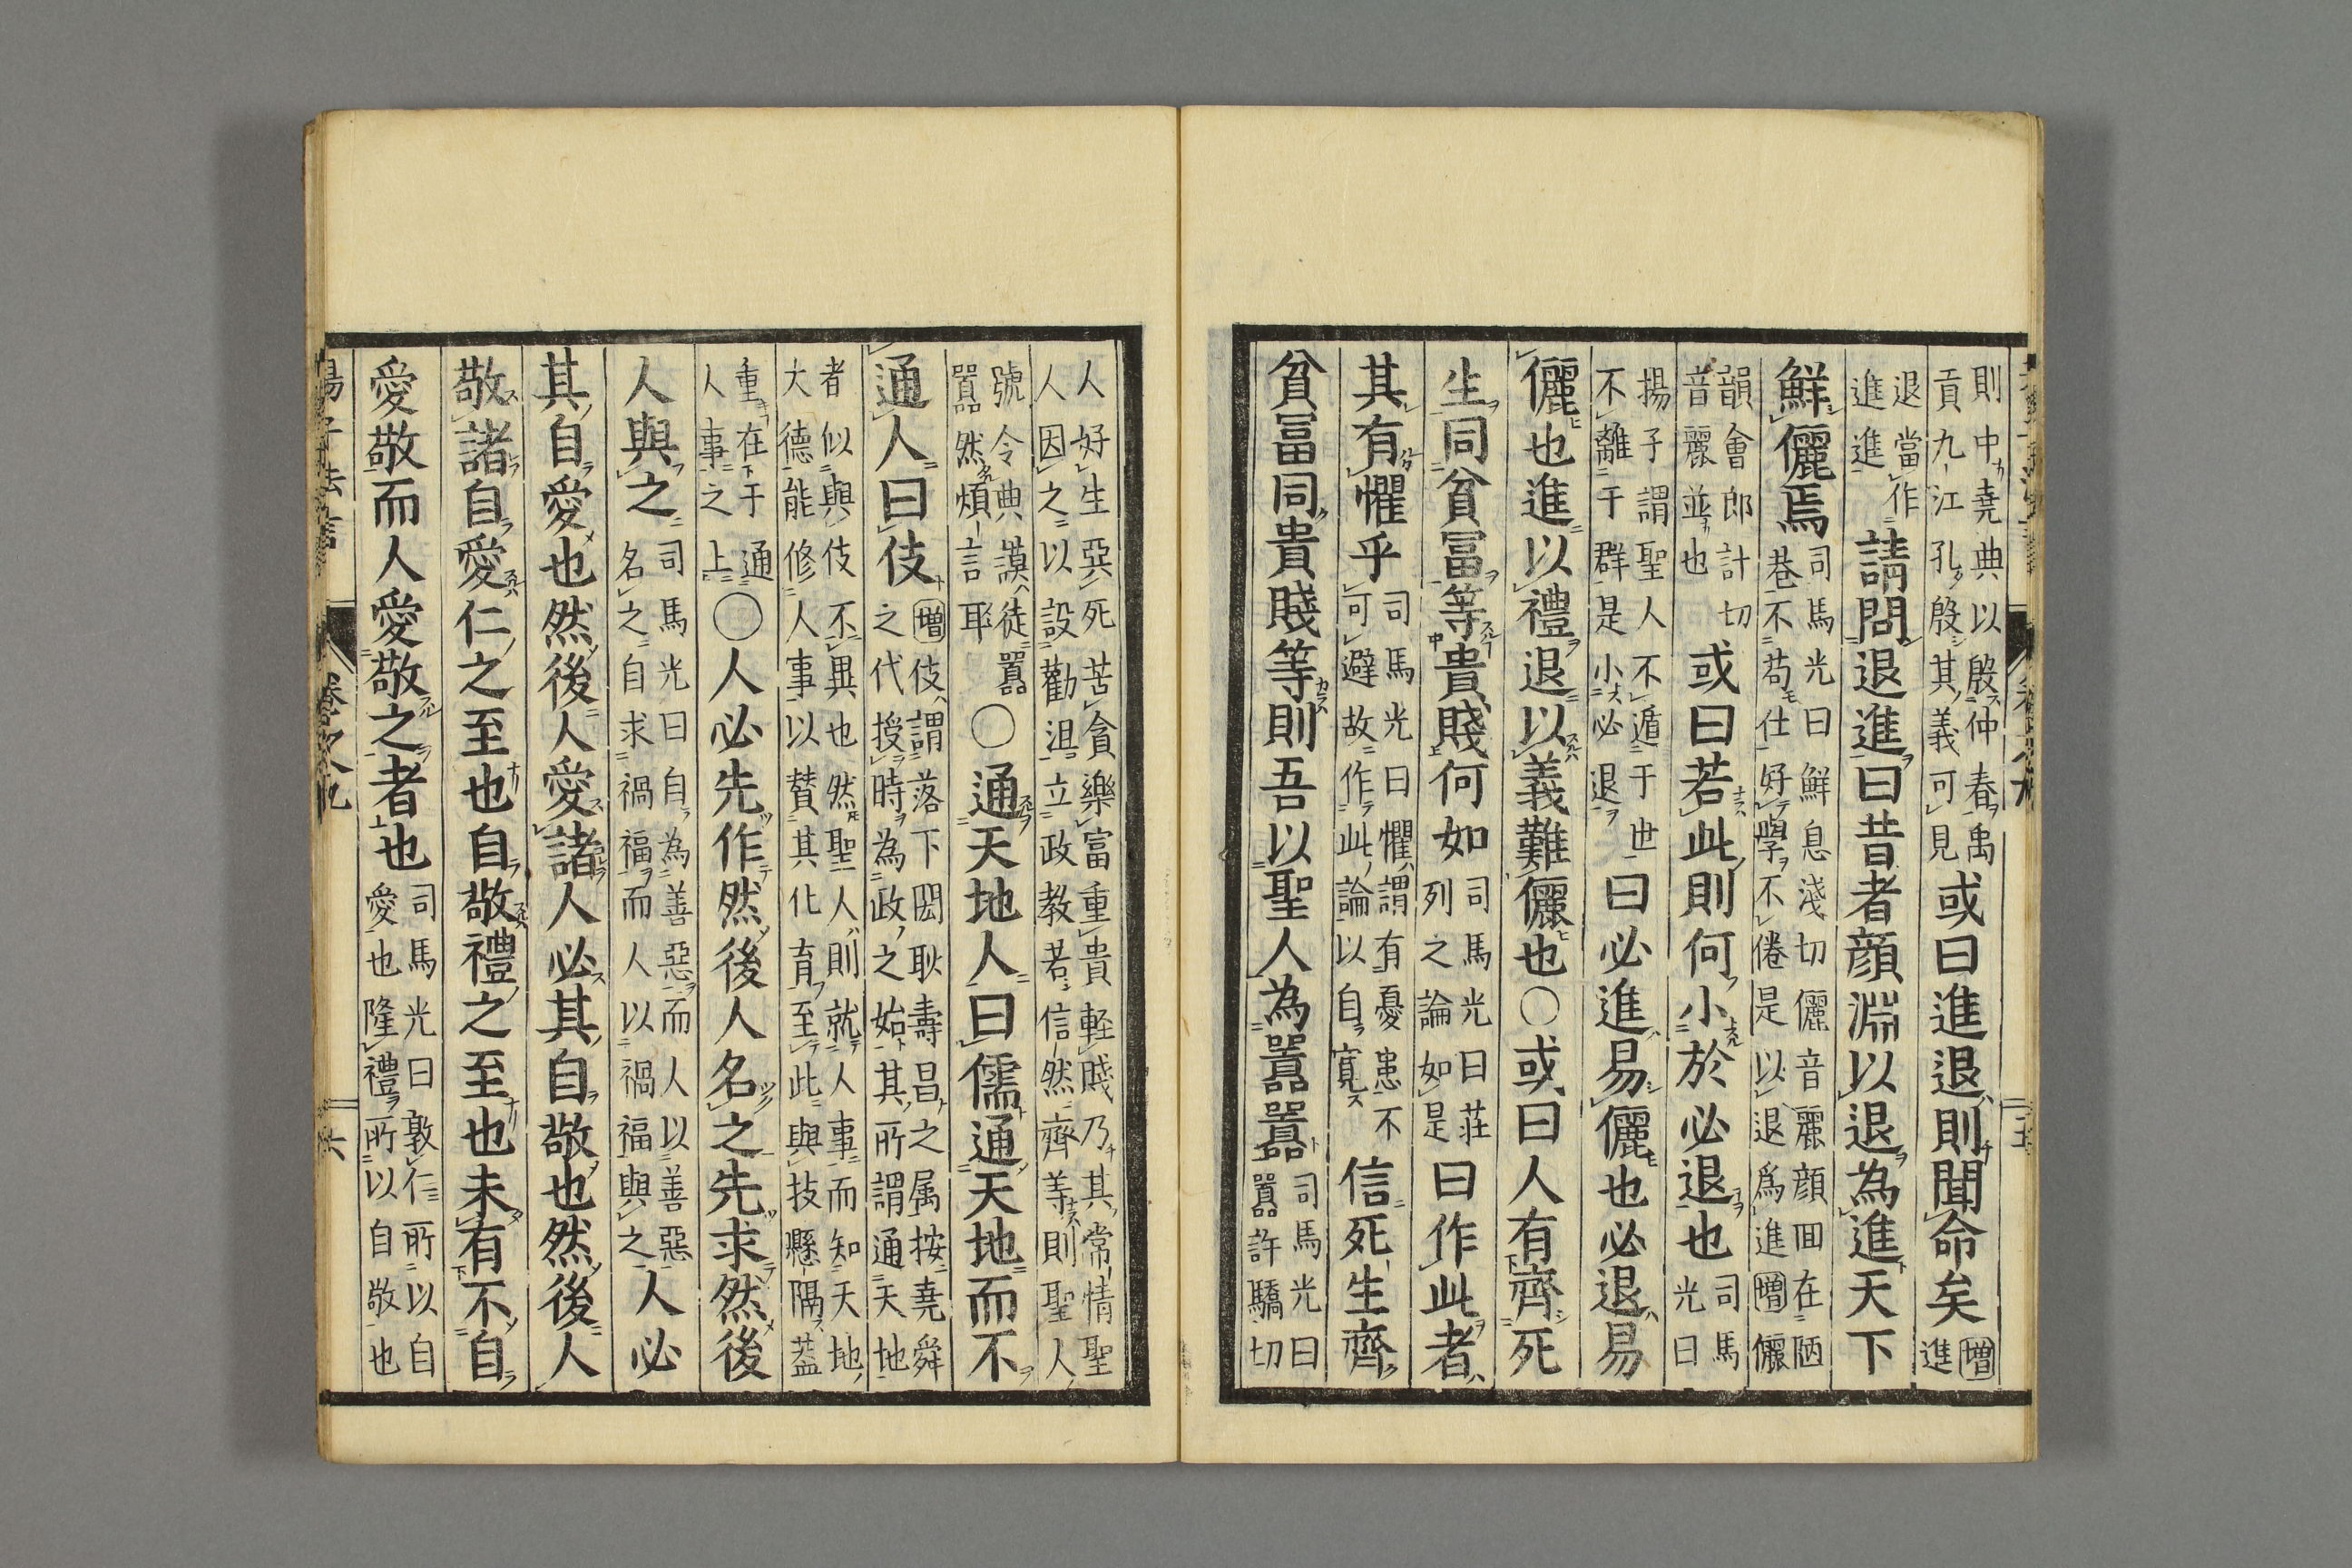 則中堯典以殷仲春禹
貢九江孔殷其義可見
或曰進退則聞命矣
增
進
退當作
進進
請問退進曰昔者顔淵以退為進天下
鮮儷焉
司馬光曰鮮息淺切儷音麗顔囬在陋
巷不苟仕好學不倦是以退爲進增儷
韻會郎計切
音麗並也
或曰若此則何小於必退也
司馬
光曰
揚子謂聖人不遁于世
不離于群是小必退
曰必進易儷也必退易
儷也進以禮退以義難儷也〇或曰人有齊死
生同貧冨等貴賤何如
司馬光曰荘
列之論如是
曰作此者
其有懼乎
司馬光曰懼謂有憂患不
可避故作此論以自寛
信死生齊
貧冨同貴賤等則吾以聖人為囂囂
司馬光曰
囂許驕切
人好生惡死苦貧樂富重貴軽賤乃其常情聖
人因之以設勸沮立政教若信然齊等則聖人
號令典謨徒囂
囂然煩言耶
〇通天地人曰儒通天地而不
通人曰伎
增伎謂落下閎耿壽昌之属按堯舜
之代授時為政之始其所謂通天地
者似與伎不異也然聖人則就人事而知天地
大德能修人事以賛其化育至此與技懸隔葢
重在于通
人事之上
〇人必先作然後人名之先求然後
人與之
司馬光曰自為善惡而人以善惡
名之自求禍福而人以禍福與之
人必
其自愛也然後人愛諸人必其自敬也然後人
敬諸自愛仁之至也自敬禮之至也未有不自
愛敬而人愛敬之者也
司馬光曰敦仁所以自
愛也隆禮所以自敬也
揚子法言
卷之九
六